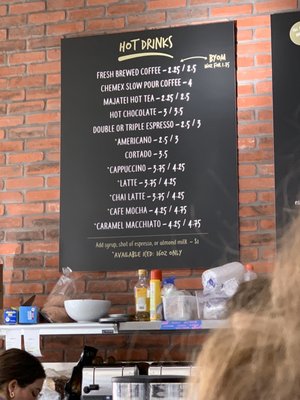 HOT DRINKS
BYOM
16OZ FOR 1.75
FRESH BREWED COFFEE - 2.25 / 2.5
CHEMEX SLOW POUR COFFEE - 4
MAJATEI HOT TEA - 2.25 / 2.5
HOT CHOCOLATE - 3 / 3.5
DOUBLE OR TRIPLE ESPRESSO - 2.5 / 3
*AMERICANO - 2.5 / 3
CORTADO - 3.5
*CAPPUCCINO - 3.75 / 4.25
*LATTE - 3.75 / 4.25
*CHAI LATTE - 3.75 / 4.25
*CAFE MOCHA - 4.25 / 4.75
*CARAMEL MACCHIATO - 4.25 / 4.75
Add syrup, shot of espresso, or almond milk - $1
*AVAILABLE ICED: 16OZ ONLY